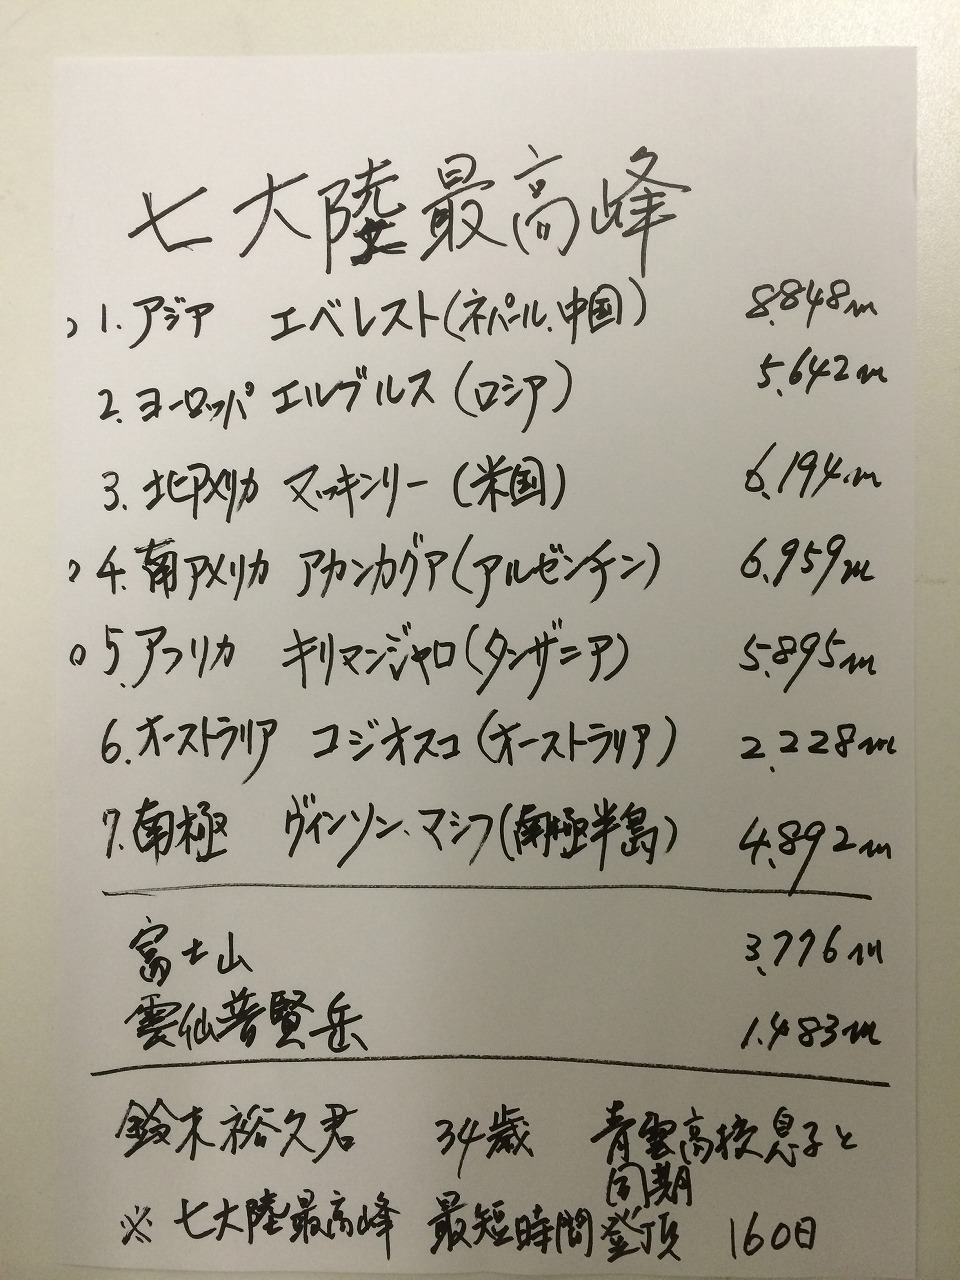 七大陸最高峰
1. アジア エベレスト(ネパール、中国) 8.848m
2. ヨーロッパ エルブルス(ロシア) 5.642m
3. 北アメリカ マッキンリー(米国) 6.194m
4. 南アメリカ アカンカグア(アルゼンチン) 6.959m
5. アフリカ キリマンジャロ(タンザニア) 5.895m
6. オーストラリア コジオスコ(オーストラリア) 2.228m
7. 南極 ヴィンソン、マシフ(南極半島) 4.892m
富士山 3.776m
雲仙普賢岳 1.483m
鈴木裕久君 34歳 青雲高校息子と
同期
※ 七大陸最高峰 最短時間登頂 160日